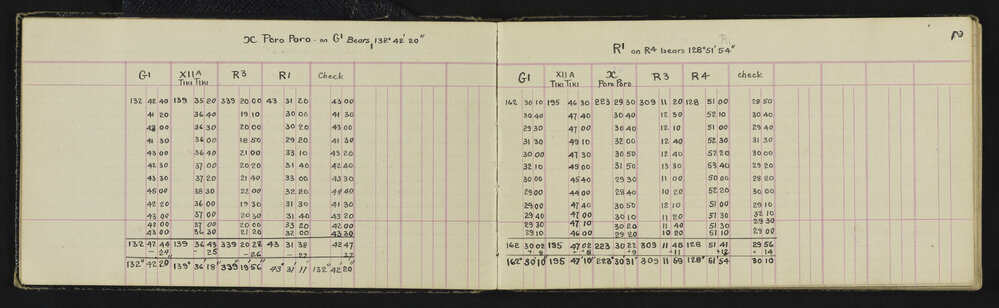 X Poro Poro - on G1 Bears 132° 42' 20"
G1 XIIA Tiki Tiki R3 R1 Check
132 42 40 139 35 20 339 20 00 43 31 20 43 00
41 20 36 40 19 10 30 00 41 30
43 00 36 30 20 00 30 20 43 00
41 30 36 00 18 50 29 20 41 30
43 00 36 40 21 00 33 10 43 20
42 30 37 00 20 20 31 40 42 40
43 30 37 20 21 40 33 00 43 30
45 00 38 30 22 00 32 20 44 40
42 20 36 00 19 30 31 30 41 30
43 00 37 00 20 30 31 40 43 20
42 00 37 00 20 00 33 20 42 00
43 00 36 30 21 20 32 00 43 30
132 42 44 139 36 43 339 20 22 43 31 38 42 47
- 24 - 25 - 26 - 27 27
132° 42' 20" 139° 36' 18" 339° 19' 56" 43° 31' 11' 132° 42' 20"
2
R1
R1 on R4 bears 128° 51' 54"
G1 XIIA Tiki Tiki X Poro Poro R3 R4 check
162 30 10 195 46 30 223 29 30 309 11 20 128 51 00 29 50
30 40 47 40 30 40 12 30 52 10 30 40
29 30 47 00 30 40 12 10 51 00 29 40
31 30 49 10 32 00 12 40 52 30 31 30
30 00 47 30 30 50 12 40 52 20 30 00
32 10 49 00 31 50 13 30 53 40 29 20
30 00 45 40 29 30 11 00 50 00 28 20
29 00 44 00 28 40 10 20 52 20 30 00
29 00 47 40 30 50 12 10 51 00 29 10
29 40 47 00 30 10 11 20 51 30 32 10
29 30 47 10 30 20 11 40 51 30 29 30
29 10 46 00 29 20 10 20 51 10 29 00
162 30 02 195 47 02 223 30 22 309 11 48 128 51 41 29 56
+ 8 + 8 + 9 + 11 + 12 + 14
162° 30' 10" 195 47' 10" 223° 30' 31" 309 11 59 128° 51' 54 30 10